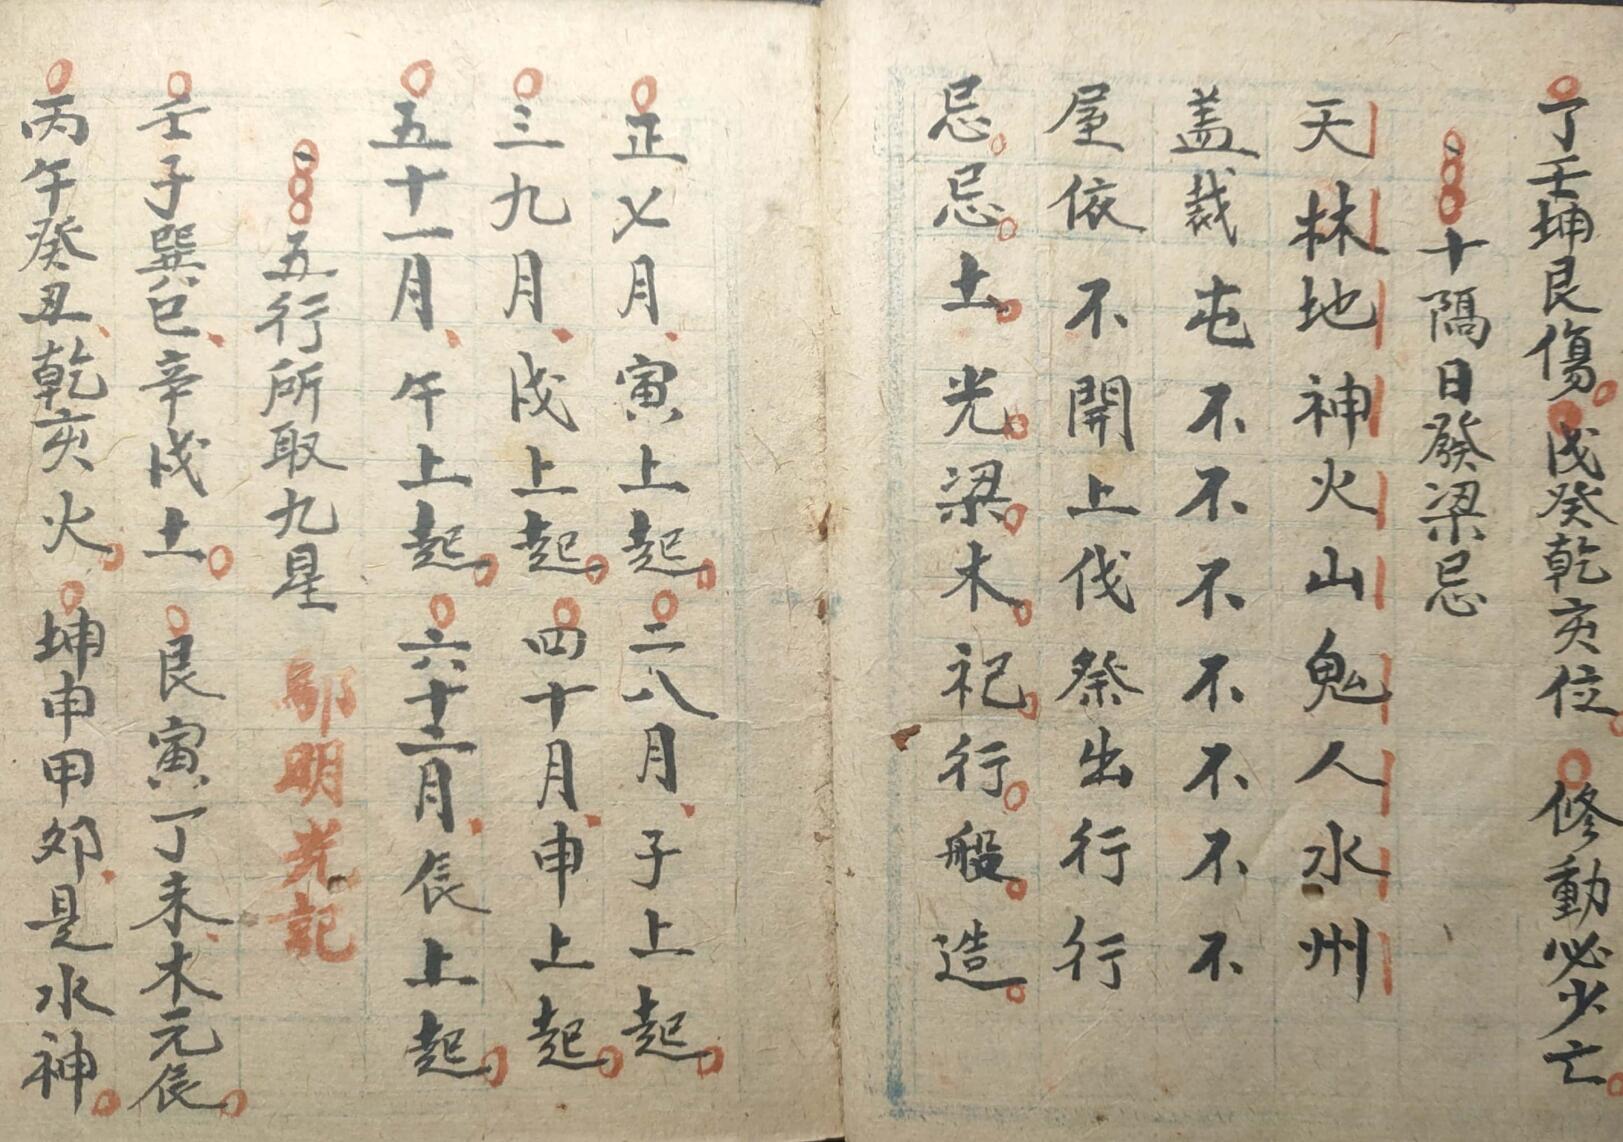 丁壬坤艮傷戊癸乾亥位修動必少亡
十隔日發梁忌
天林地神火山鬼人水州
盖裁屯不不不不不不
屋依不開上伐祭出行行
忌忌土光梁木祀行船造
正メ月寅上起二八月子上起
三九月戌上起四十月申上起
五十一月午上起六十二月辰上起
五行所取九星 鄔明光記
壬子巽巳辛戌土艮寅丁未木元辰
丙午癸丑乾亥火坤申甲卯是水神